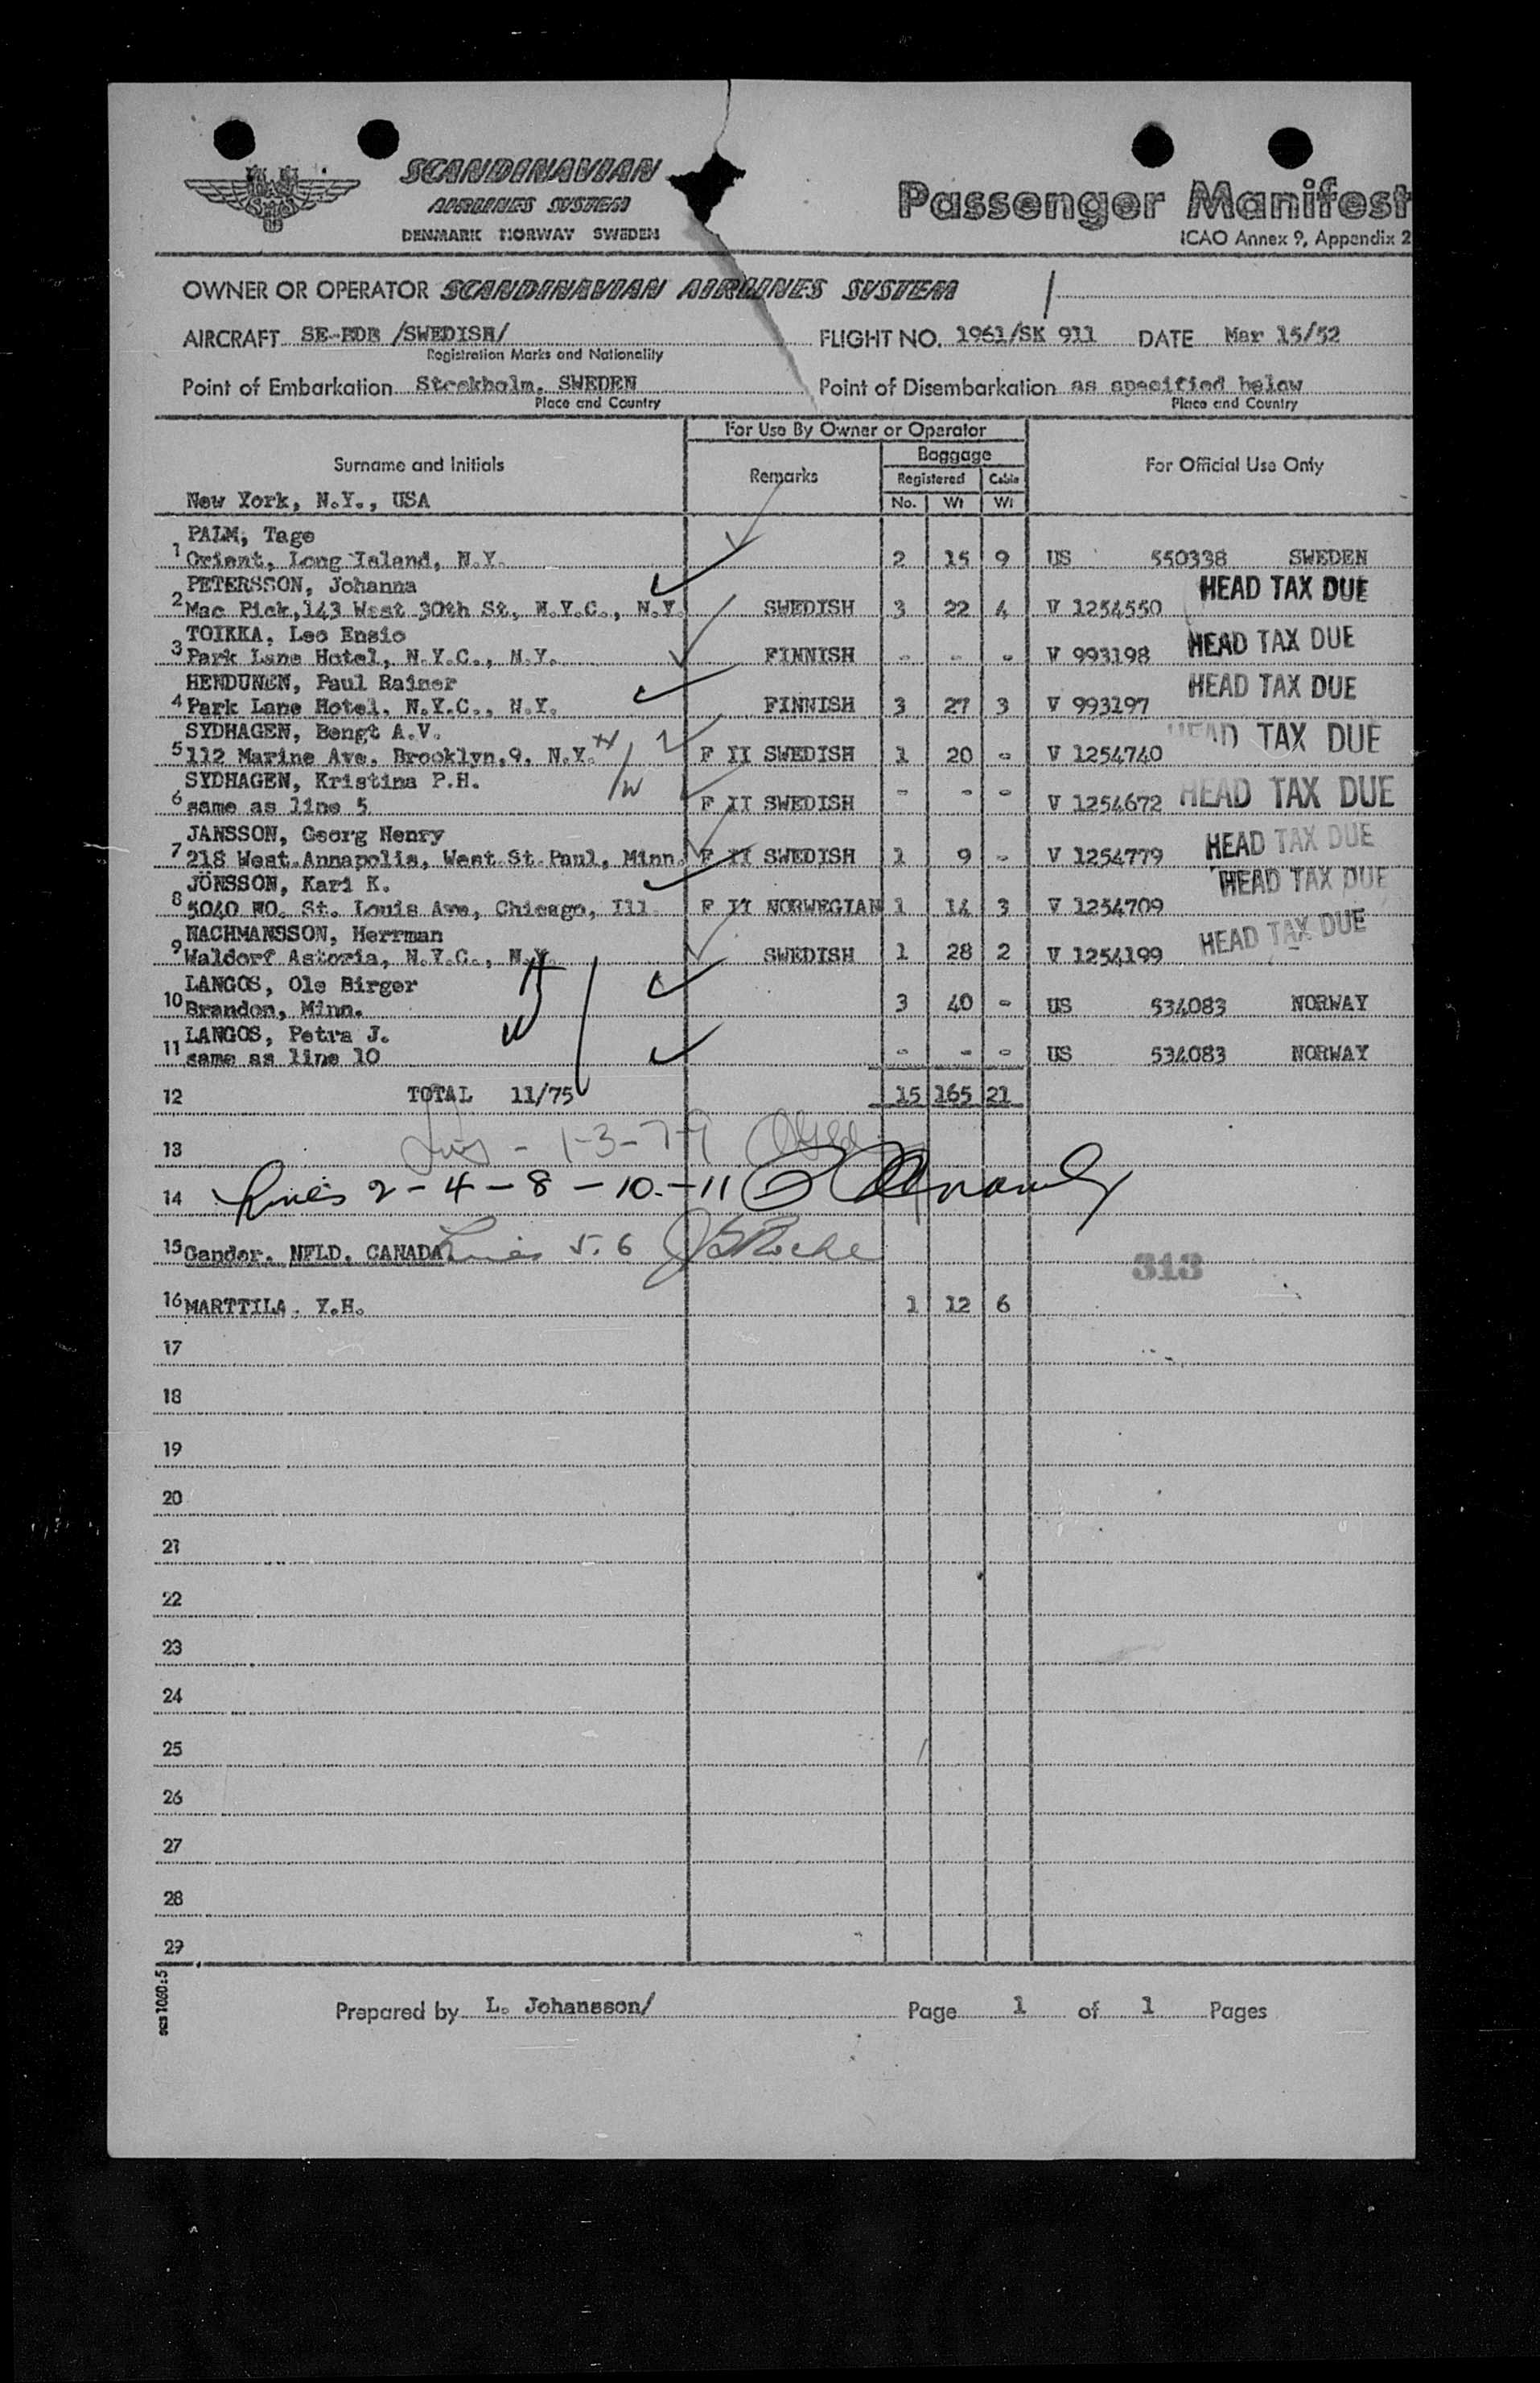 SCANDINAVIAN
AIRLINES SYSTEM
DENMARK NORWAY SWEDEN
Passenger Manifest
ICAO Annex 9, Appendix 2
OWNER OR OPERATOR SCANDINAVIAN AIRLINES SYSTEM
AIRCRAFT SE-BDR /SWEDISH/ FLIGHT NO. 1961/SK 911 DATE Mar 15/52
Registration Marks and Nationality
Point of Embarkation Stockholm, SWEDEN Point of Disembarkation as specified below
Place and Country Place and Country
For Use By Owner or Operator
Surname and Initials Remarks Baggage For Official Use Only
Registered Cabin
New York, N.Y., USA No. Wt Wt
PALM, Tage
1 Orient, Long Island, N.Y. 2 15 9 US 550338 SWEDEN
PETERSSON, Johanna HEAD TAX DUE
2 Mac Pick, 143 West 30th St, N.Y.C., N.Y. SWEDISH 3 22 4 V 1254550
TOIKKA, Leo Ensio HEAD TAX DUE
3 Park Lane Hotel, N.Y.C., N.Y. FINNISH - - - V 993198
HENDUNEN, Paul Rainer HEAD TAX DUE
4 Park Lane Hotel, N.Y.C., N.Y. FINNISH 3 27 3 V 993197
SYDHAGEN, Bengt A.V. HEAD TAX DUE
5 112 Marine Ave. Brooklyn,9, N.Y. F II SWEDISH 1 20 - V 1254740
SYDHAGEN, Kristina P.H. HEAD TAX DUE
6 same as line 5 F II SWEDISH - - - V 1254672
JANSSON, Georg Henry HEAD TAX DUE
7 218 West Annapolis, West St Paul, Minn. F II SWEDISH 1 9 - V 1254779
JÖNSSON, Kari K. HEAD TAX DUE
8 5040 NO. St. Louis Ave, Chicago, Ill F II NORWEGIAN 1 14 3 V 1254709
NACHMANSSON, Herrman HEAD TAX DUE
9 Waldorf Astoria, N.Y.C., N.Y. SWEDISH 1 28 2 V 1254199
LANGOS, Ole Birger
10 Brandon, Minn. 3 40 - US 534083 NORWAY
LANGOS, Petra J.
11 same as line 10 - - - US 534083 NORWAY
12 TOTAL 11/75 15 165 21
13 1-3-7-9
14 Lines 2-4-8-10-11
15 Gander, NFLD, CANADA Lines 5.6
313
16 MARTTILA, Y.H. 1 12 6
17
18
19
20
21
22
23
24
25
26
27
28
29
Prepared by L. Johansson/ Page 1 of 1 Pages